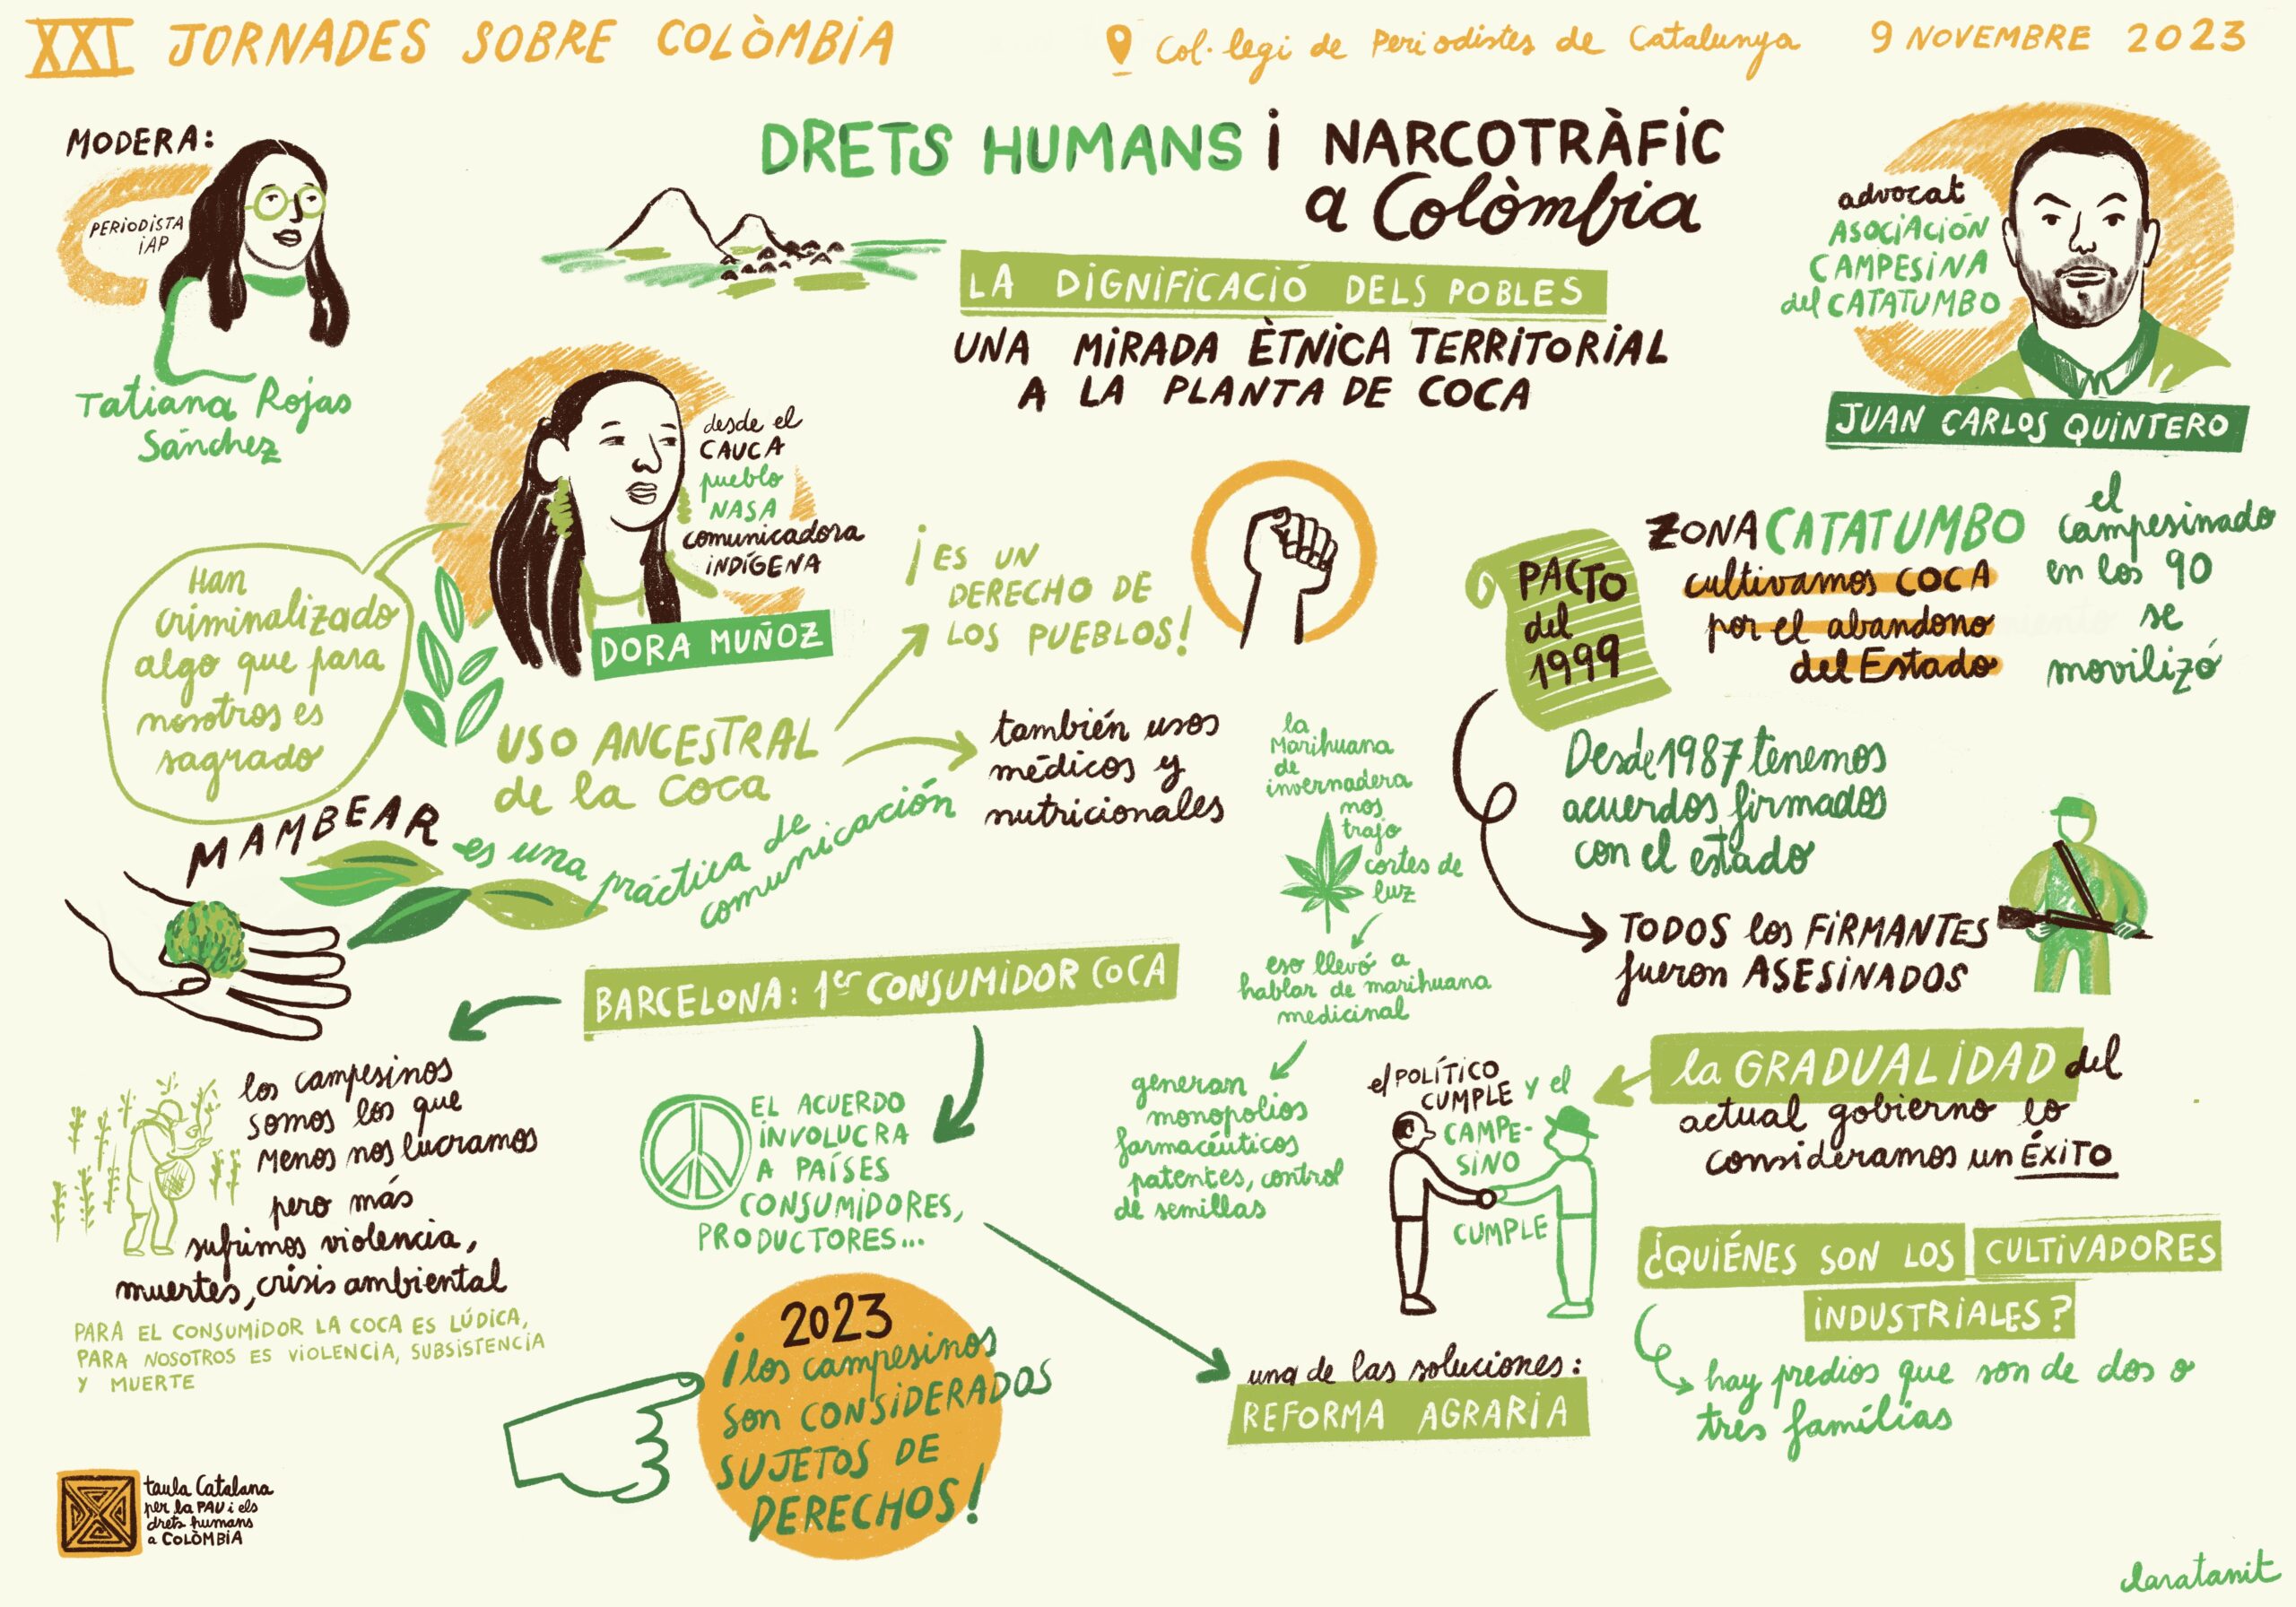 XXI JORNADES SOBRE COLÒMBIA
Col·legi de Periodistes de Catalunya
9 NOVEMBRE 2023
MODERA:
PERIODISTA
IAP
Tatiana Rojas
Sánchez
DRETS HUMANS i NARCOTRÀFIC
a Colòmbia
LA DIGNIFICACIÓ DELS POBLES
UNA MIRADA ÈTNICA TERRITORIAL
A LA PLANTA DE COCA
advocat
ASOCIACIÓN
CAMPESINA
del CATATUMBO
JUAN CARLOS QUINTERO
desde el
CAUCA
pueblo
NASA
comunicadora
INDÍGENA
DORA MUÑOZ
Han
criminalizado
algo que para
nosotros es
sagrado
¡ES UN
DERECHO DE
LOS PUEBLOS!
USO ANCESTRAL
de la coca
también usos
médicos y
nutricionales
MAMBEAR
es una práctica de
comunicación
la
Marihuana
de
invernadera
nos
trajo
cortes de
luz
eso llevó a
hablar de marihuana
medicinal
generan
monopolios
farmacéuticos
patentes, control
de semillas
PACTO
del
1999
ZONA CATATUMBO
cultivamos COCA
por el abandono
del Estado
el
campesinado
en los 90
se
movilizó
Desde 1987 tenemos
acuerdos firmados
con el estado
TODOS los FIRMANTES
fueron ASESINADOS
BARCELONA: 1er CONSUMIDOR COCA
los campesinos
somos los que
menos nos lucramos
pero más
sufrimos violencia,
muertes, crisis ambiental
PARA EL CONSUMIDOR LA COCA ES LÚDICA,
PARA NOSOTROS ES VIOLENCIA, SUBSISTENCIA
Y MUERTE
EL ACUERDO
INVOLUCRA
A PAÍSES
CONSUMIDORES,
PRODUCTORES...
2023
¡los campesinos
son CONSIDERADOS
SUJETOS DE
DERECHOS!
la GRADUALIDAD del
actual gobierno lo
consideramos un ÉXITO
el POLÍTICO
CUMPLE y el
CAMPE-
SINO
CUMPLE
¿QUIÉNES SON LOS CULTIVADORES
INDUSTRIALES?
hay predios que son de dos o
tres famílias
una de las soluciones:
REFORMA AGRARIA
taula Catalana
per la PAU i els
drets humans
a COLÒMBIA
claratanit